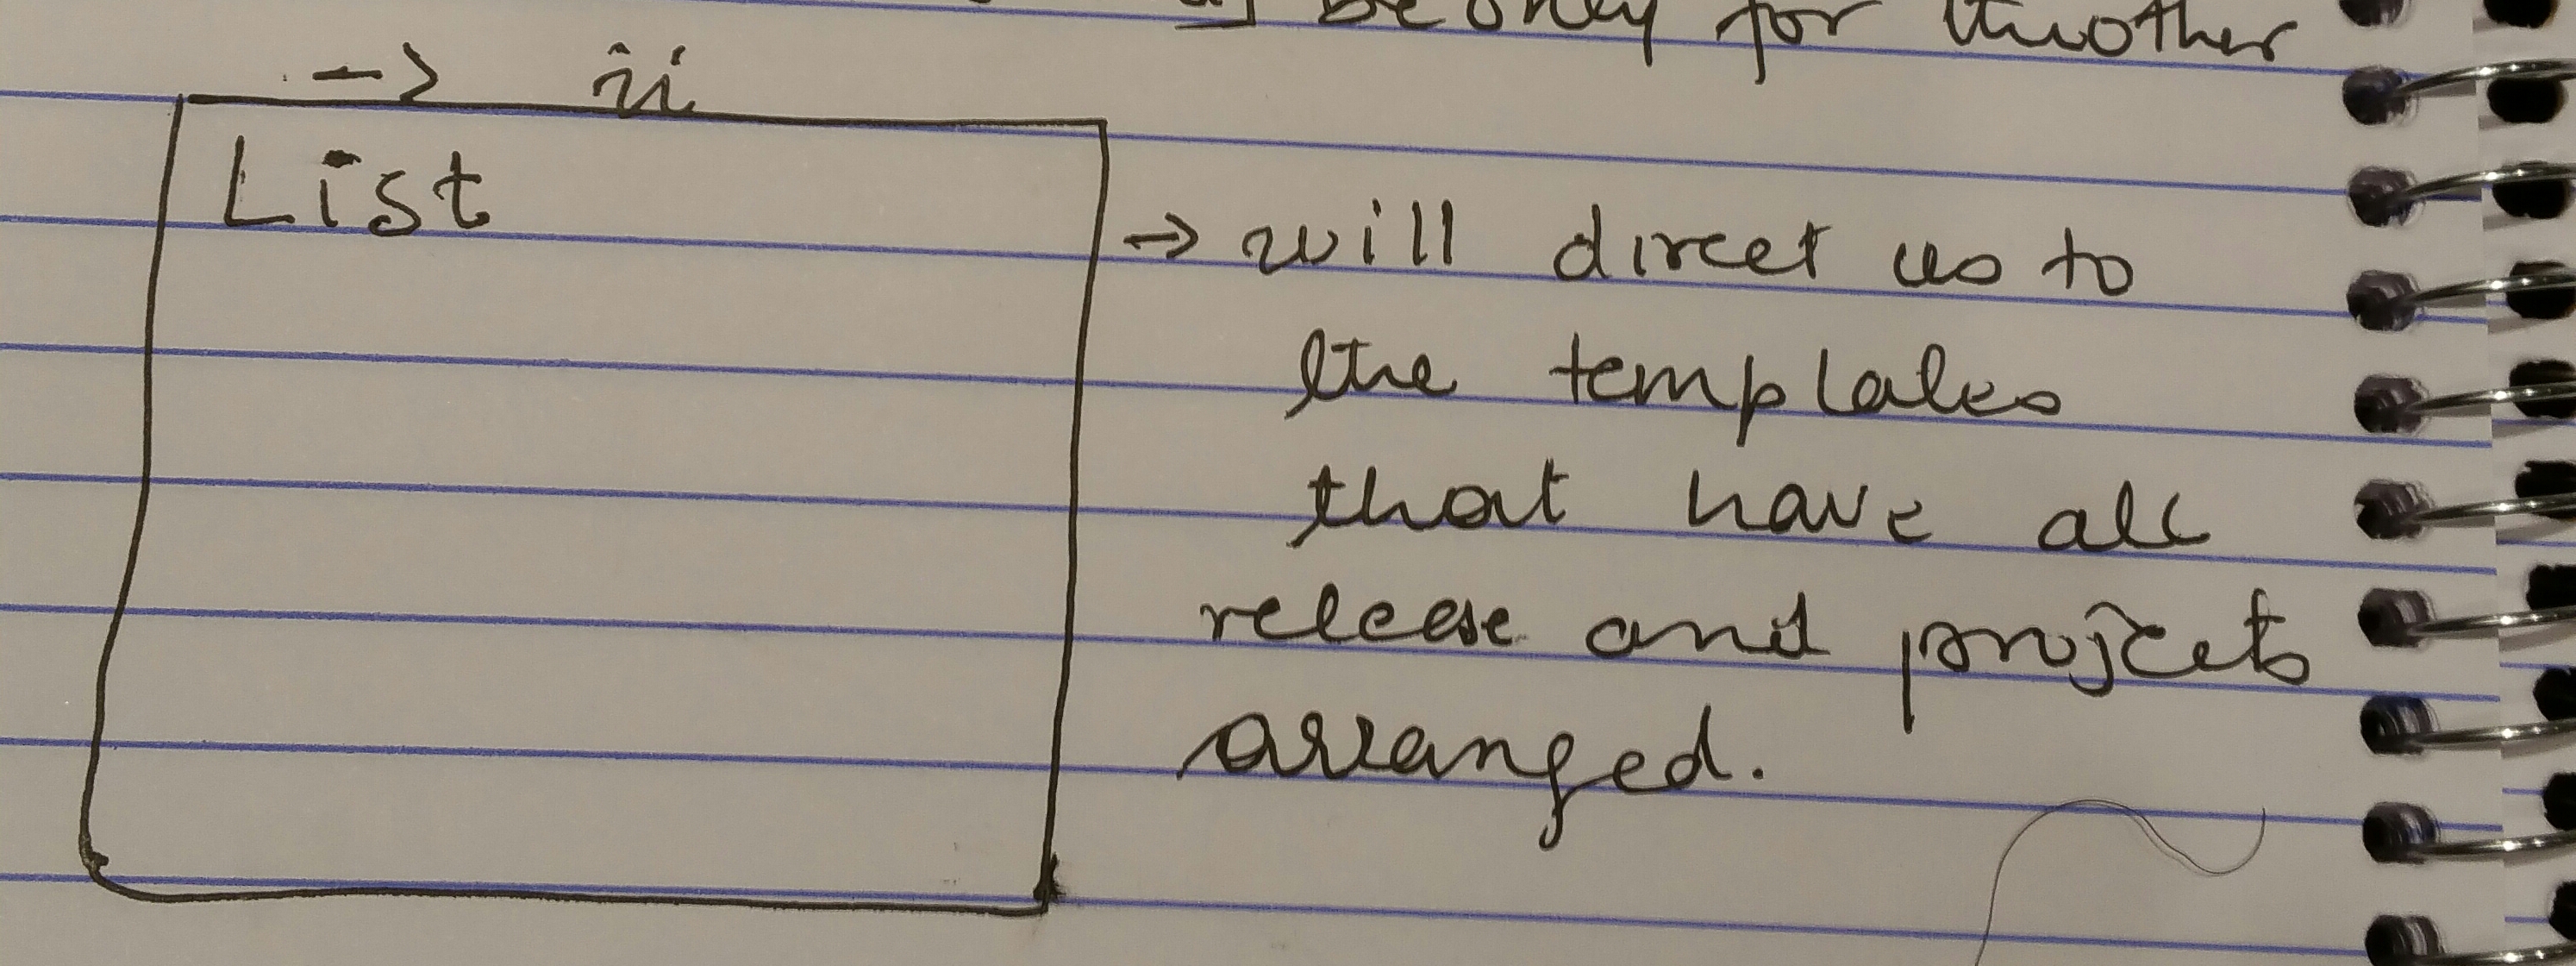 be only for
→ ii
List
→ will direct us to
the templates
that have all
release and projects
arranged.